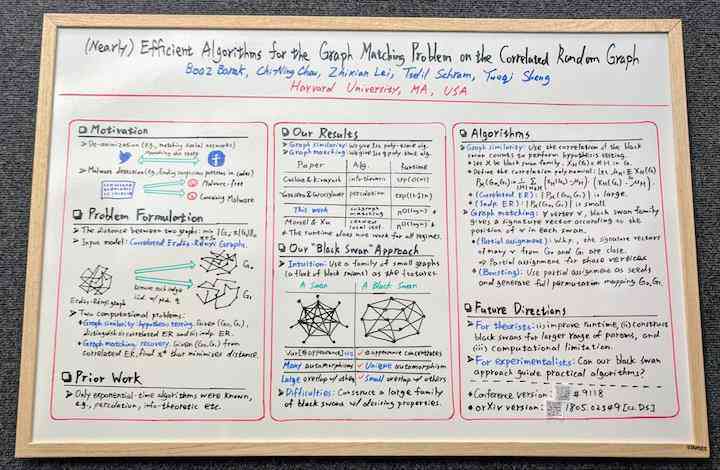 (Nearly) Efficient Algorithms for the Graph Matching Problem on the Correlated Random Graph
Boaz Barak, Chi-Ning Chou, Zhixian Lei, Tselil Schramm, Yueqi Sheng
Harvard University, MA, USA
Motivation
De-anonymization (e.g., matching social networks)
Malware detection (e.g., finding suspicious patterns in codes)
Malware-free
Containing Malware
Problem Formulation
The distance between two graphs: min
Input model: Correlated Erdős-Rényi Graphs.
G0
remove each edge
i.i.d. w/ prob.
G1
Erdős-Rényi graph
Two computational problems:
Graph similarity: hypothesis testing. Given (G0,G1),
distinguish correlated ER and indep. ER.
Graph matching: recovery. Given (G0,G1) from
correlated ER, find π* that minimizes distance.
Prior Work
Only exponential-time algorithms were known,
e.g., percolation, info-theoretic etc.
Our Results
Graph similarity: We give 1st poly-time alg.
Graph matching: We give 1st q-poly-time alg.
Paper Alg. runtime
Cullina & Kiyavash info-theoretic exp(O(n))
Yartseva & Grossglauser percolation
This work subgraph matching n^O(log n)
Mossel & Xu seeded local stat. n^O(log n)
The runtime does not work for all regimes.
Our "Black Swan" Approach
Intuition: Use a family of small graphs
(a flock of black swans) as the features.
A Swan A Black Swan
Var[# appearance] is appearance concentrates
Many automorphism Unique automorphism
Large overlap of others Small overlap of others
Difficulties: Construct a large family
of black swans w/ desiring properties.
Algorithms
Graph similarity: Use the correlation of the black
swan counts to perform hypothesis testing.
Let H be black swan family. XH(G) = # H in G.
Define the correlation polynomial:
(Correlated ER): |PH(G0,G1)| is large.
(Indep. ER): |PH(G0,G1)| is small.
Graph matching: ∀ vertex v, black swan family
gives a signature vector according to the
position of v in each swan.
(Partial assignment): W.h.p., the signature vectors
of many v from G0 and G1 are close.
⇒ Partial assignment for those vertices
(Boosting): Use partial assignment as seeds
and generate full permutation mapping G0,G1.
Future Directions
For theorists: (i) improve runtime, (ii) construct
black swans for larger range of params, and
(iii) computational limitation.
For experimentalists: Can our black swan
approach guide practical algorithms?
Conference version: #9118
arXiv version: 1805.02349 [cs.DS]